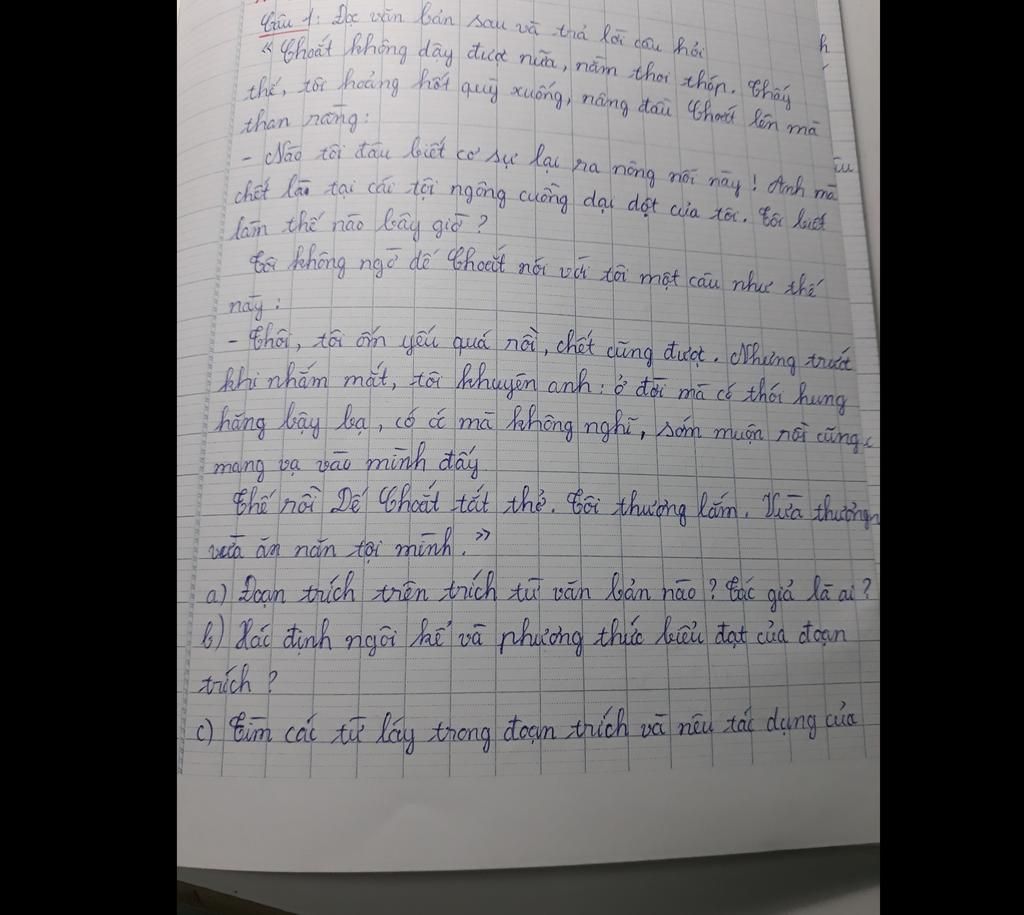 Câu 1: Đọc văn bản sau và trả lời câu hỏi
" Choắt không dậy được nữa, nằm thoi thóp. Thấy
thế, tôi hoảng hốt quỳ xuống, nâng đầu Choắt lên mà
than rằng:
- Nào tôi đâu biết cơ sự lại ra nông nỗi này! Anh mà
chết là tại cái tội ngông cuồng dại dột của tôi. Tôi biết
làm thế nào bây giờ?
Tôi không ngờ dế Choắt nói với tôi một câu như thế
này:
- Thôi, tôi ốm yếu quá rồi, chết cũng được. Nhưng trước
khi nhắm mắt, tôi khuyên anh: ở đời mà có thói hung
hăng bậy bạ, có óc mà không nghĩ, sớm muộn rồi cũng
mang vạ vào mình đấy
Thế rồi Dế Choắt tắt thở. Tôi thương lắm. Vừa thương
vừa ăn năn tội mình. "
a) Đoạn trích trên trích từ văn bản nào? Tác giả là ai?
b) Xác định ngôi kể và phương thức biểu đạt của đoạn
trích?
c) Tìm các từ láy trong đoạn trích và nêu tác dụng của